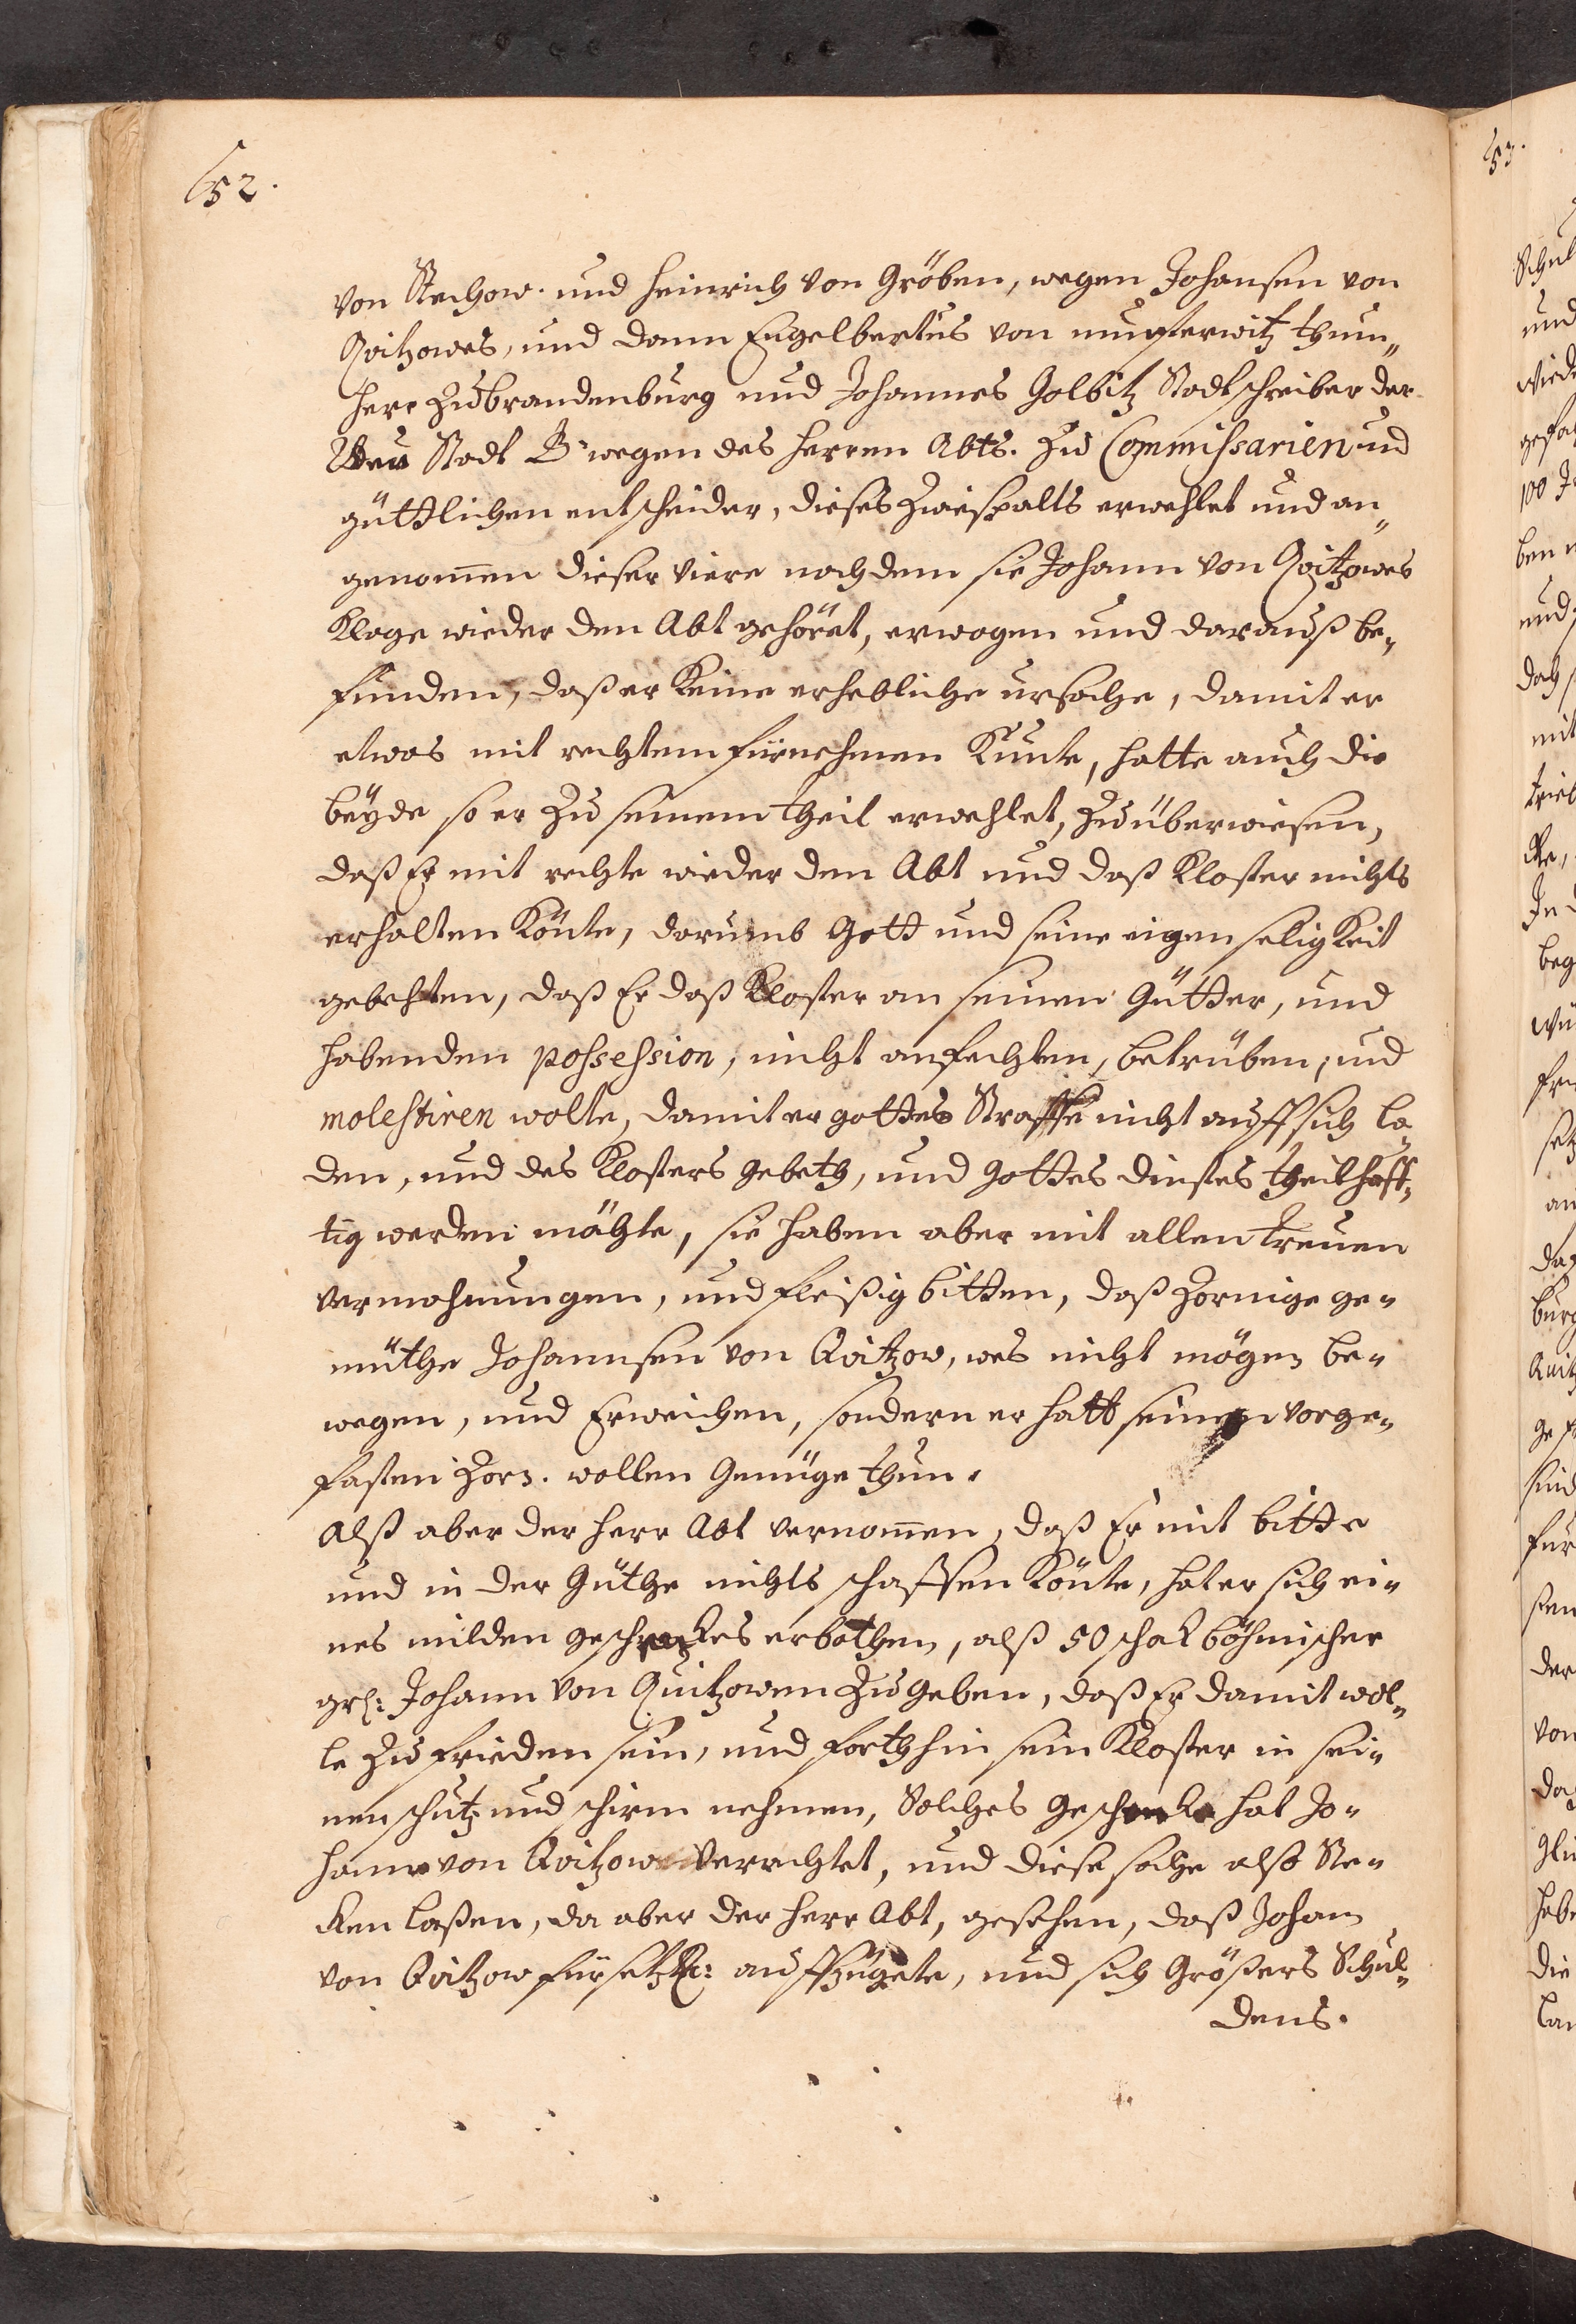 652.
von Stechow. und Heinrich von Gröben, wegen Johansen von
Qvitzowes, und dann Engelbertus von musterwitz thum„
Herr Zu brandenburg und Johannes Golbitz Stadtschreiber der
Neu Stadt B. wegen des Herren Abts. Zu Commissarien und
güttlichen entscheider, dieses Zwiespalts erwehlet und an„
genom̄en dieser viere nach dem sie Johann von Qvitzowes
Klage wieder den Abt gehöret, erwogen und darauß be„
funden, daß er Keine erhebliche ursache, damit er
etwas mit rechtem fürnehmen Kunte, hatte auch die
beÿde so er Zu seinem theil erwehlet, Zu überwiesen,
daß Er mit rechte wieder den Abt und daß Kloster nichts
erhalten Könte, darumb Gott und seine eigen seligKeit
gebehten, daß Er daß Kloster an seinen Gütter, und
habenden possession, nicht anfechten, betrüben, und
molestiren wolte, damit er gottes Straffe nicht auff sich la„
den, und des Klosters gebeth, und Gottes dinstes theilhaff„
tig werden möchte, sie haben aber mit allen treuen
vermahnungen, und fleißig bitten, daß Zornige ge„
müthe Johannsen von Qvitzow, wes nicht mögen be„
wegen, und Erweichen, sondern er hatt seinen vorge„
fasten Zorn. wollen Genüge thun.
Alß aber der Herr Abt vernom̄en, daß Er mit bitte
und in der Güthe nichts schaffen Könte, hat er sich ei„
nes milden geschenKes erbothen, alß 50 schoK böhmischer
grs: Johann von Quitzowen Zu geben, daß Er damit wol„
le Zu frieden sein, und forthhin sein Kloster in sei„
nen schutz und schirm nehmen, Solches geschenKe hat Jo„
hann von Qvitzow verachtet, und diese sache also Ste„
cken laßen, da aber der Herr Abt, gesehen, daß Johan
von Qvitzow auffzügete, und sich Größers Schul„
dens.
53.